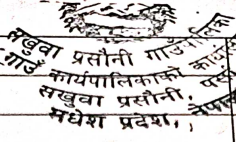 सखुवा प्रसौनी गाउँपालिका
गाउँ कार्यपालिकाको कार्यालय
सखुवा प्रसौनी, पर्सा
मधेश प्रदेश, नेपाल